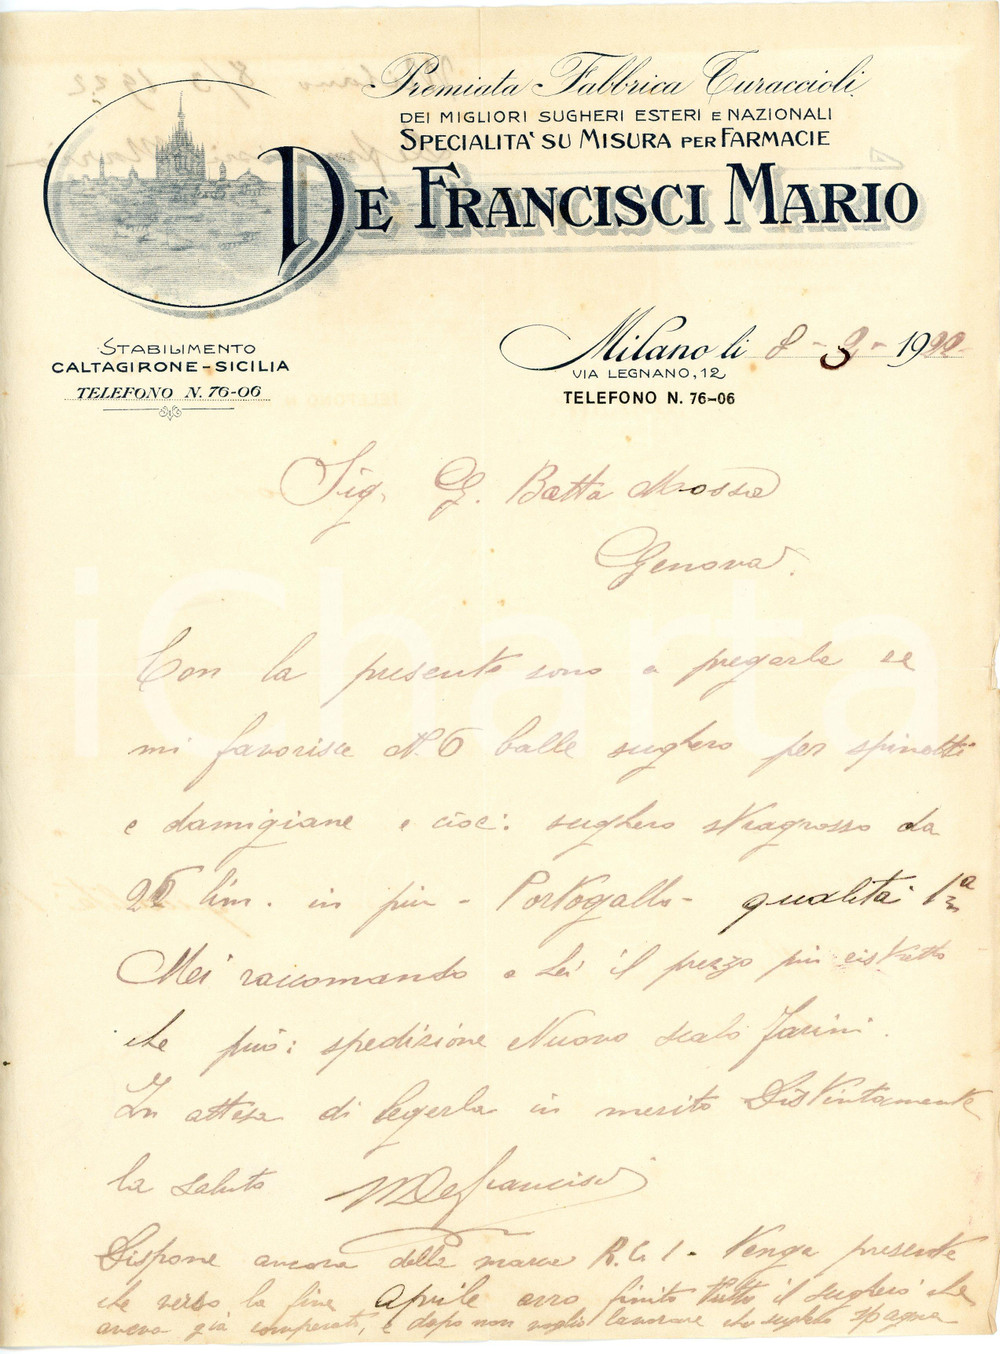 Premiata Fabbrica Turaccioli
DEI MIGLIORI SUGHERI ESTERI E NAZIONALI
SPECIALITA' SU MISURA PER FARMACIE
DE FRANCISCI MARIO
STABILIMENTO
CALTAGIRONE-SICILIA
TELEFONO N. 76-06
Milano li 8-3-1922
VIA LEGNANO, 12
TELEFONO N. 76-06
Sig. G. Batta Mossa
Genova.
Con la presente sono a pregarla se
mi favorisce N. 6 balle sughero per spinetti
e damigiane e cioè: sughero stragrosso da
lin. in più - Portogallo - qualità 1ª
Mei raccomando a Lei il prezzo più ristretto
che può: spedizione Nuovo scalo Farini.
In attesa di legerla in merito Distintamente
la saluto MDefrancisci
Dispone ancora della marca R.G.1. Tenga presente
che verso la fine Aprile avro finito tutto il sughero che
avevo già comperato, e dopo non voglio lavorare che sughero Spagna
iCharta